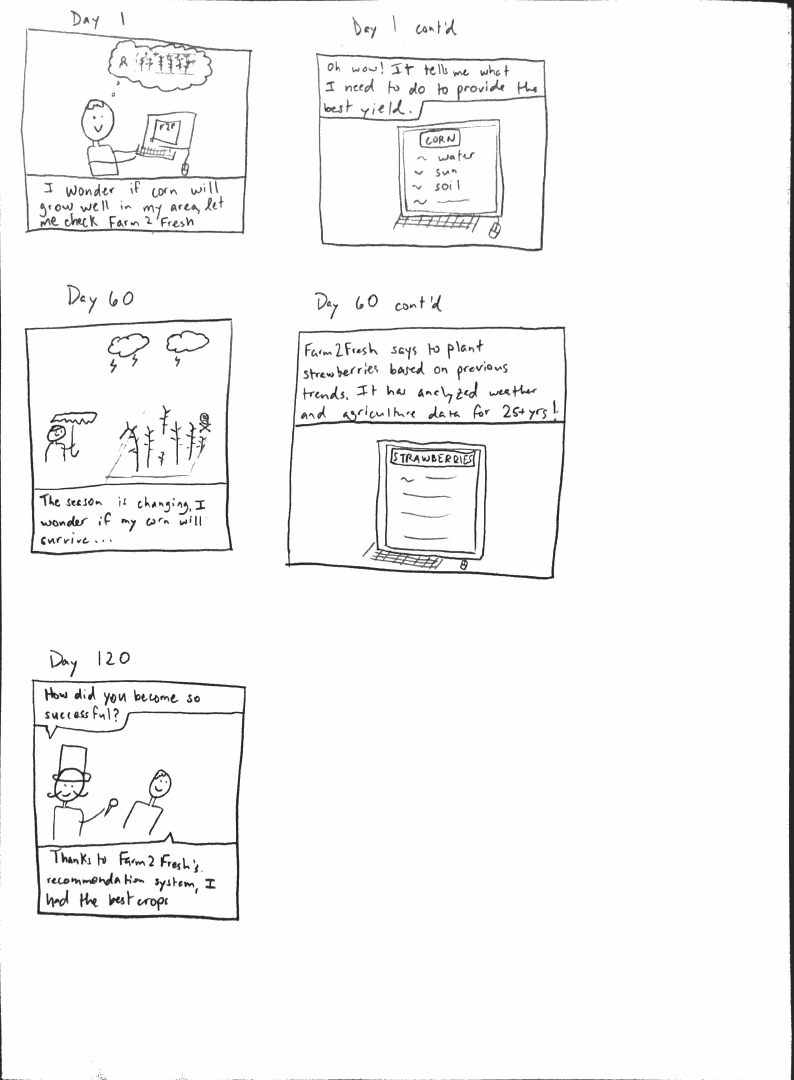 Day 1
F2F
I wonder if corn will
grow well in my area, let
me check Farm2Fresh
Day 1 cont'd
Oh wow! It tells me what
I need to do to provide the
best yield.
CORN
~ water
~ sun
~ soil
Day 60
The season is changing, I
wonder if my corn will
survive...
Day 60 cont'd
Farm2Fresh says to plant
strawberries based on previous
trends. It has analyzed weather
and agriculture data for 25+yrs!
STRAWBERRIES
Day 120
How did you become so
successful?
Thanks to Farm2Fresh's
recommendation system, I
had the best crops